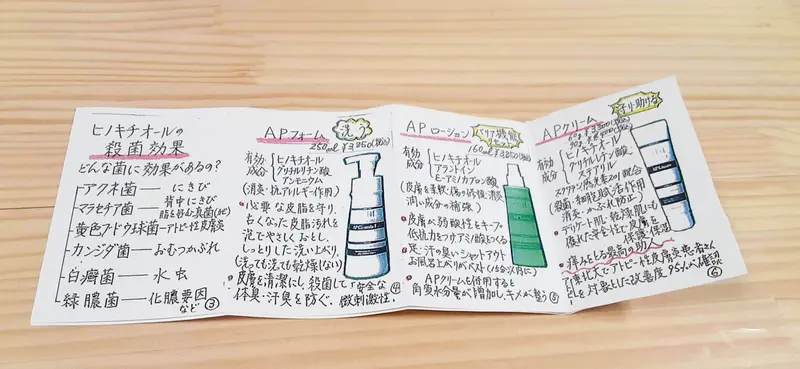 ヒノキチオールの
殺菌効果
どんな菌に効果があるの?
アクネ菌 — にきび
マラセチア菌 — 背中にきび
脂を好む真菌(カビ)
黄色ブドウ球菌 — アトピー性皮膚炎
カンジダ菌 — おむつかぶれ
白癬菌 — 水虫
緑膿菌 — 化膿要因
など ③
APフォーム
洗う
250ml ¥3,850(税込)
有効
成分
ヒノキチオール
グリチルリチン酸
アンモニウム
(消炎・抗アレルギー作用)
・必要な皮脂を守り、
古くなった皮脂汚れを
泡でやさしくおとし、
しっとりした洗い上がり。
(洗っても洗っても乾燥しない)
・皮膚を清潔にし、殺菌して
体臭・汗臭を防ぐ。
安全な
微刺激性。
④
APローション
バリア機能
160ml ¥3,850(税込)
有効
成分
ヒノキチオール
アラントイン
E-アミノカプロン酸
(皮膚を柔軟・傷の修復・消炎
潤い成分の補強)
・皮膚が弱酸性をキープ
低抗力をつけアミノ酸をつくる
・足・汗の臭いシャットアウト
お風呂上がりがベスト(15分以内に)
・APクリームを併用すると
角質水分量が増加し、キメが整う
⑤
APクリーム
守り・助ける
ヒノキチオール
グリチルレチン酸
ステアリル
有効
成分
(殺菌・細胞賦活作用
消炎・かぶれ防止)
・デリケート肌・乾燥肌にも
優れた安全性で皮膚を
修復・保湿
・痛みをとる最高の助人
を対象とした改善度95%が確認
⑥